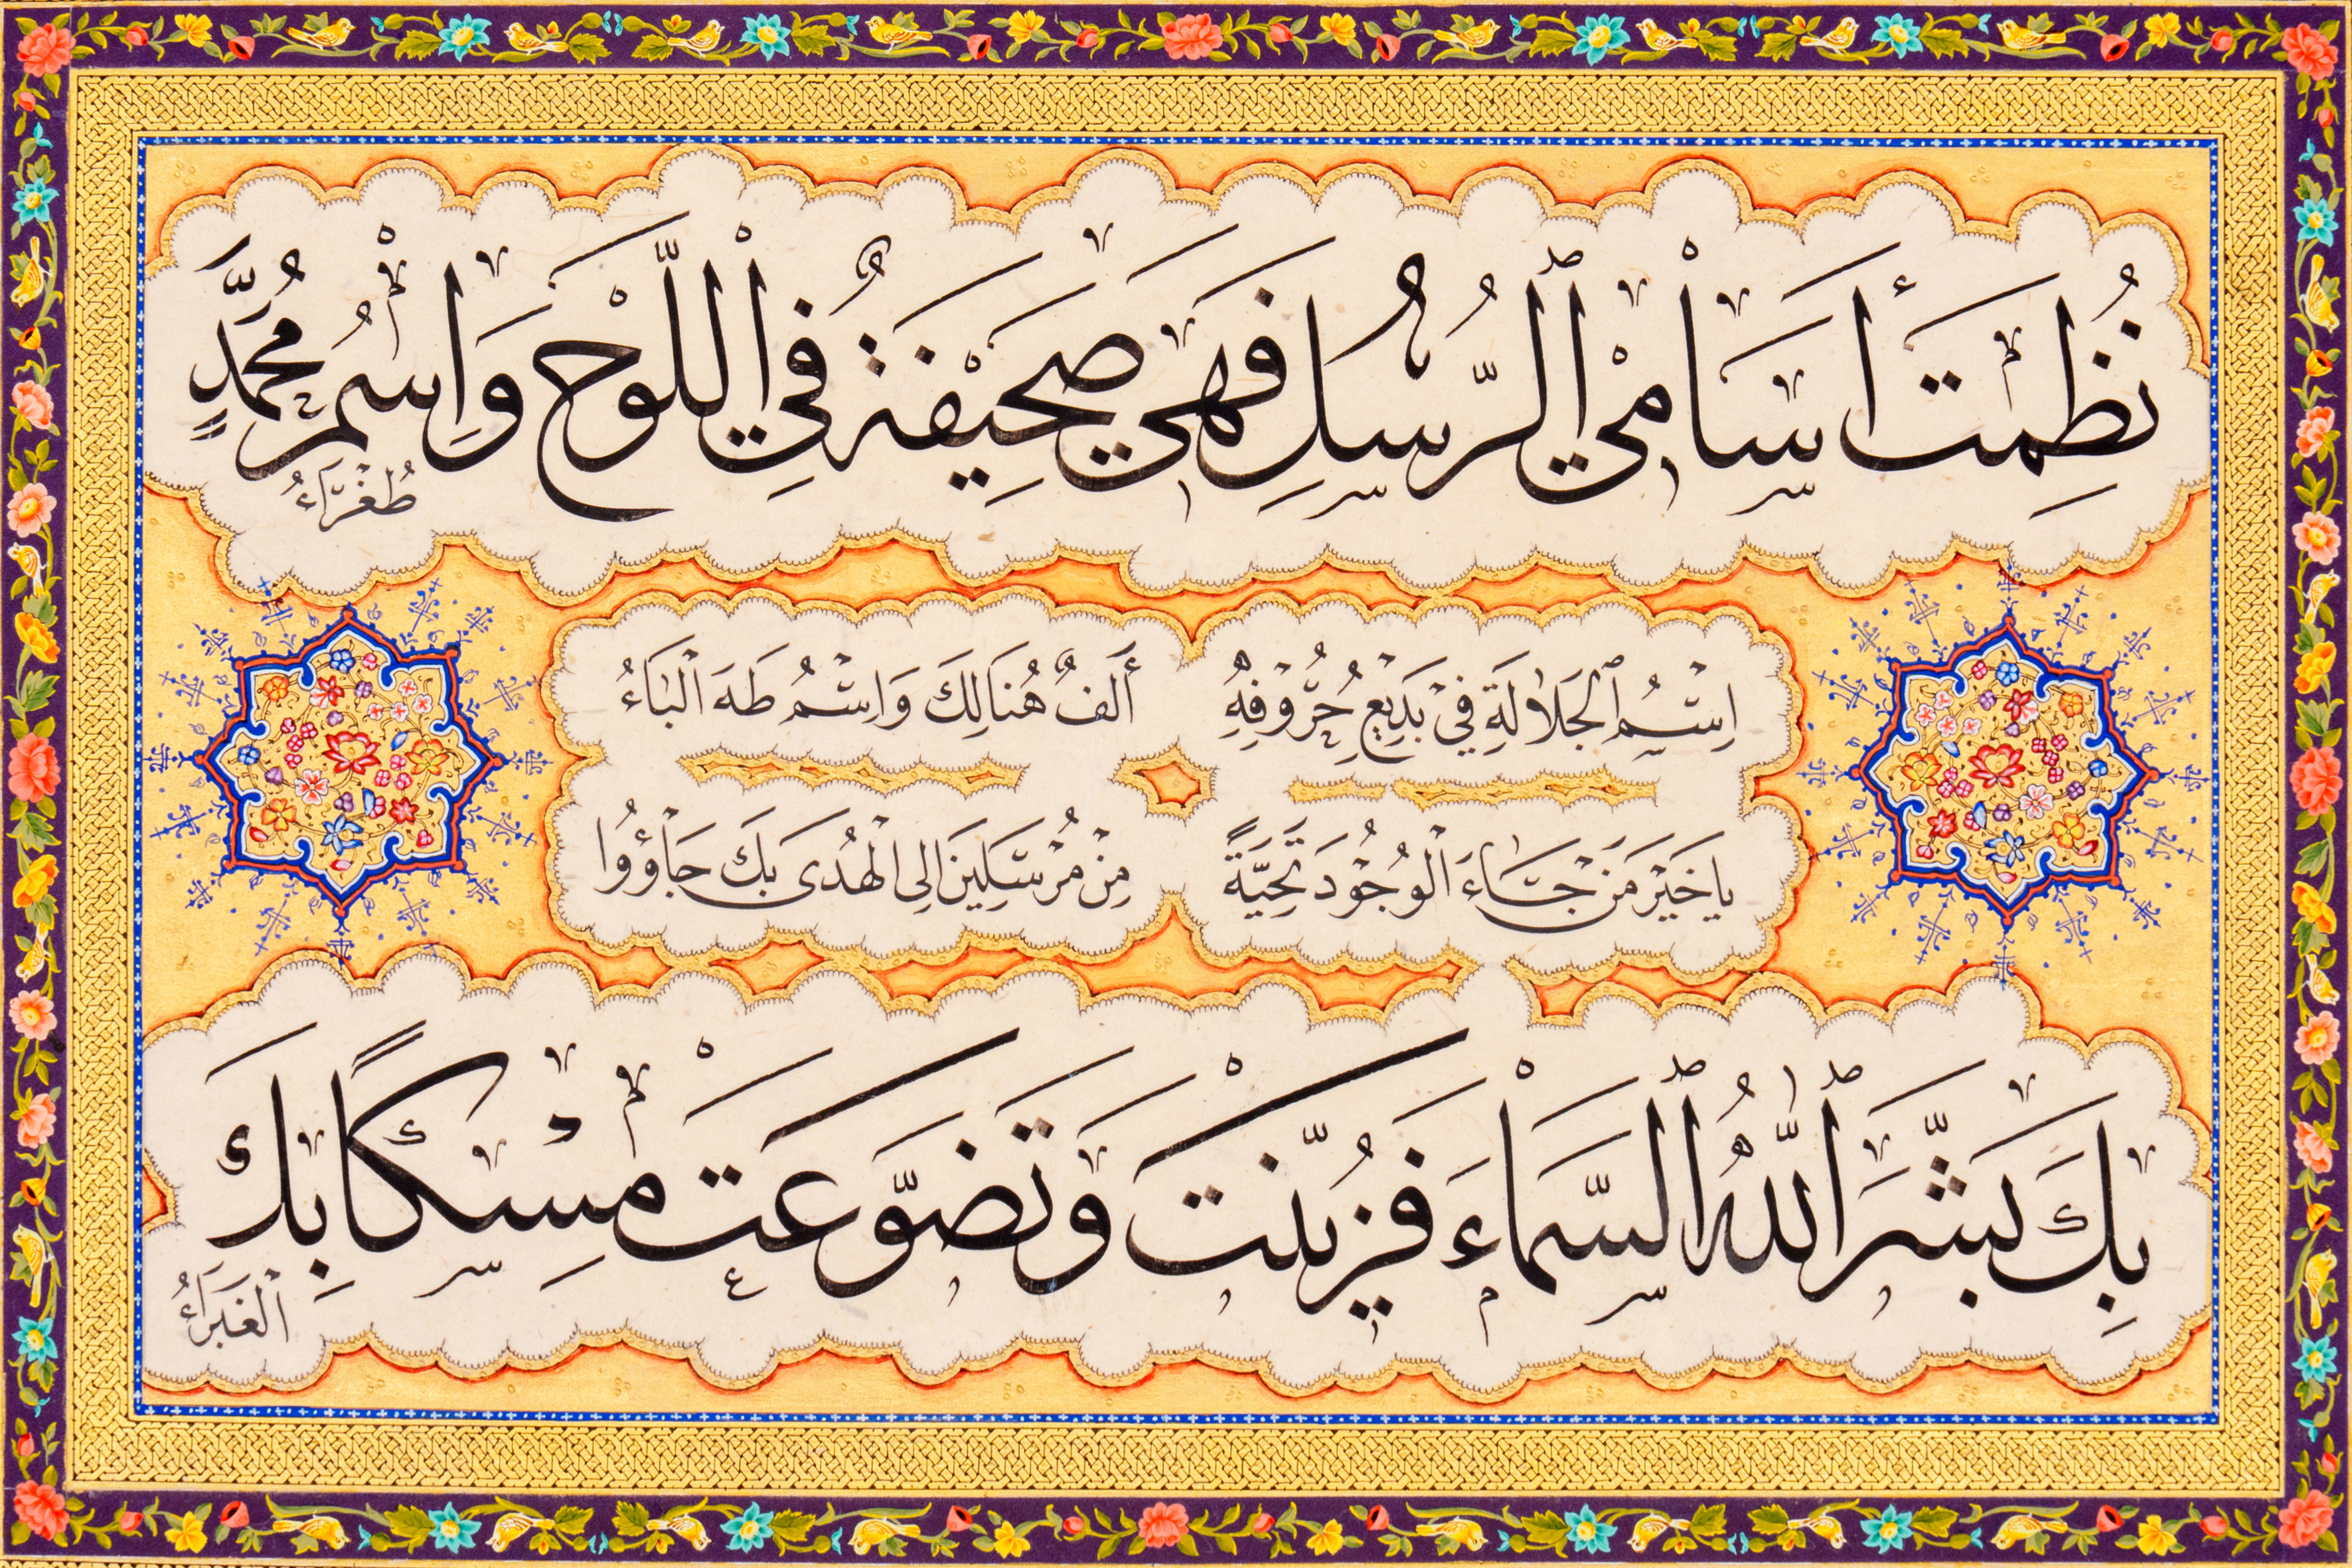 نُظِمَتْ أَسَامِي ٱلرُّسْلِ فَهِيَ صَحِيْفَةٌ فِي اللَّوْحِ وَاِسْمُ مُحَمَّدٍ
طُغَرَّاءُ
اِسْمُ ٱلْجَلَالَةِ فِيْ بَدِيْعِ حُرُوْفِهِ أَلِفٌ هُنَالِكَ وَاِسْمُ طَهَ الْبَاءُ
يا خَيْرَ مَنْ جَاءَ الْوُجُوْدَ تَحِيَّةً مِنْ مُرْسَلِيْنَ اِلى الْهُدَى بَكَ جَاؤُوا
بِكَ بَشَّرَ ٱللهُ ٱلسَّمَاءَ فَزُيِّنَتْ وَتَضَوَّعَتْ مِسْكًا بِكَ
الْغَبَرَاءُ